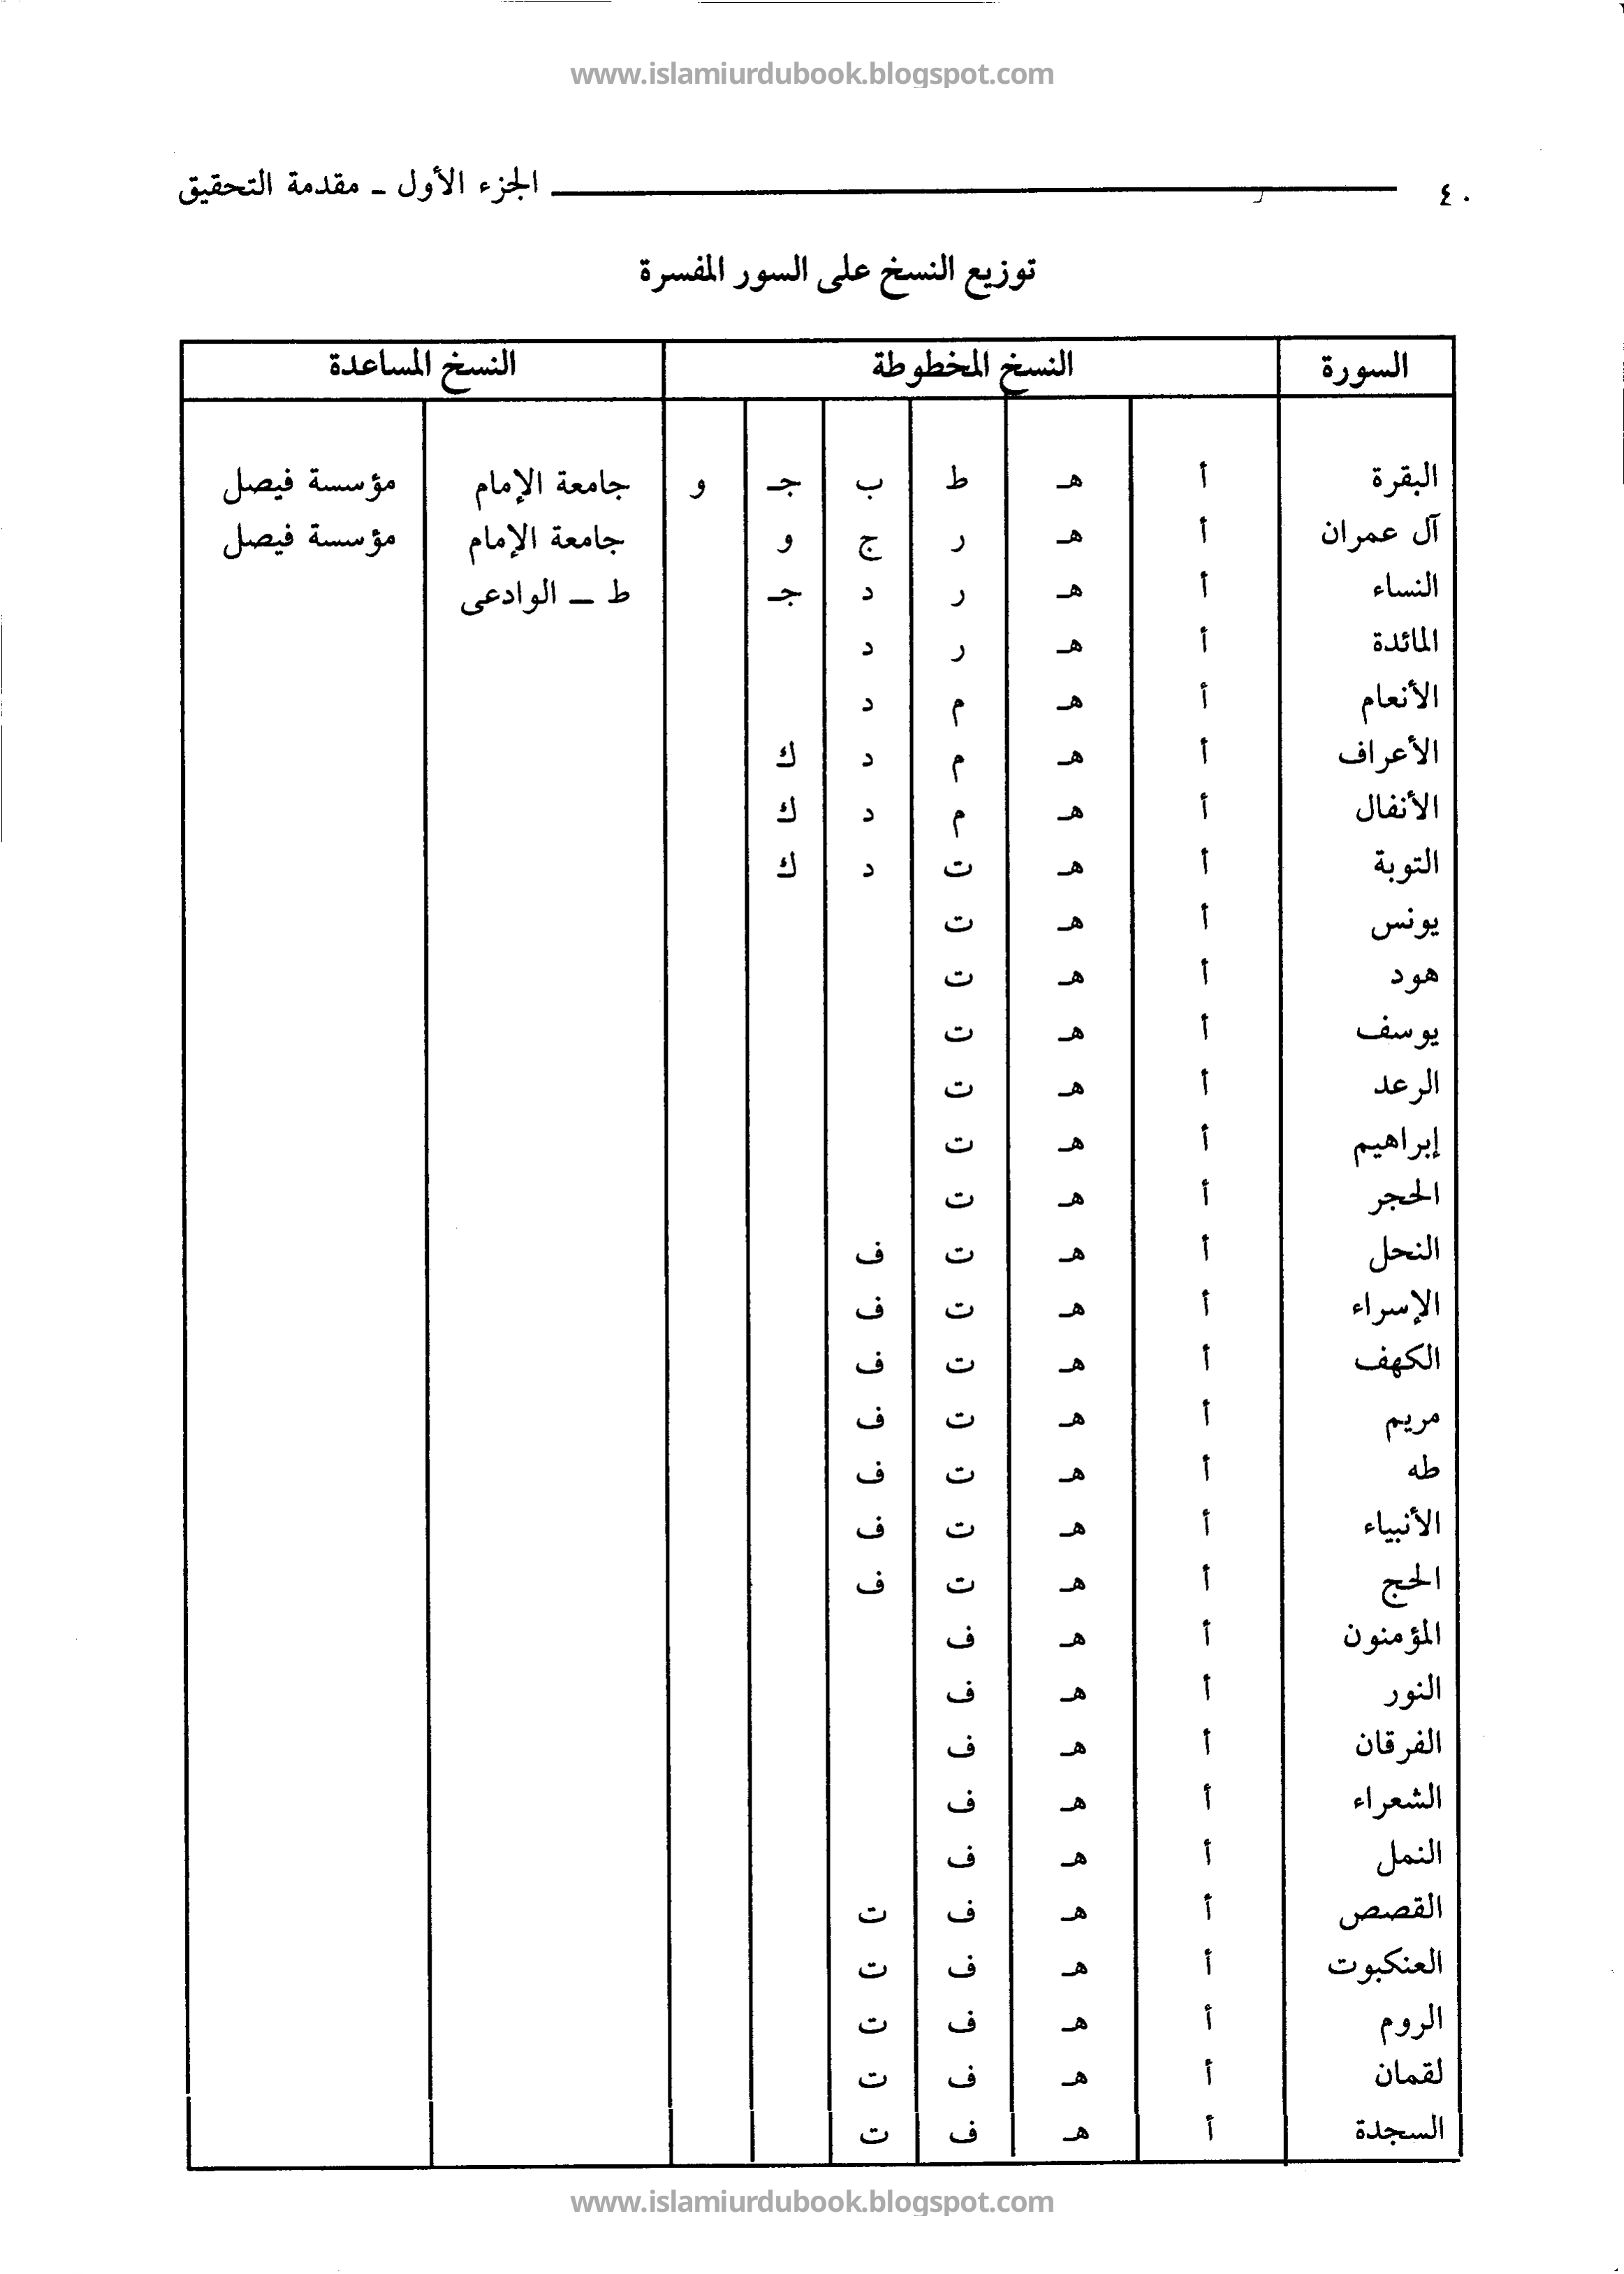 www.islamiurdubook.blogspot.com
٤٠ الجزء الأول ـ مقدمة التحقيق
توزيع النسخ على السور المفسرة
السورة النسخ المخطوطة النسخ المساعدة
البقرة أ هـ ط ب جـ و جامعة الإمام مؤسسة فيصل
آل عمران أ هـ ر ج و جامعة الإمام مؤسسة فيصل
النساء أ هـ ر د جـ ط ــ الوادعى
المائدة أ هـ ر د
الأنعام أ هـ م د
الأعراف أ هـ م د ك
الأنفال أ هـ م د ك
التوبة أ هـ ت د ك
يونس أ هـ ت
هود أ هـ ت
يوسف أ هـ ت
الرعد أ هـ ت
إبراهيم أ هـ ت
الحجر أ هـ ت
النحل أ هـ ت ف
الإسراء أ هـ ت ف
الكهف أ هـ ت ف
مريم أ هـ ت ف
طه أ هـ ت ف
الأنبياء أ هـ ت ف
الحج أ هـ ت ف
المؤمنون أ هـ ف
النور أ هـ ف
الفرقان أ هـ ف
الشعراء أ هـ ف
النمل أ هـ ف
القصص أ هـ ف ت
العنكبوت أ هـ ف ت
الروم أ هـ ف ت
لقمان أ هـ ف ت
السجدة أ هـ ف ت
www.islamiurdubook.blogspot.com